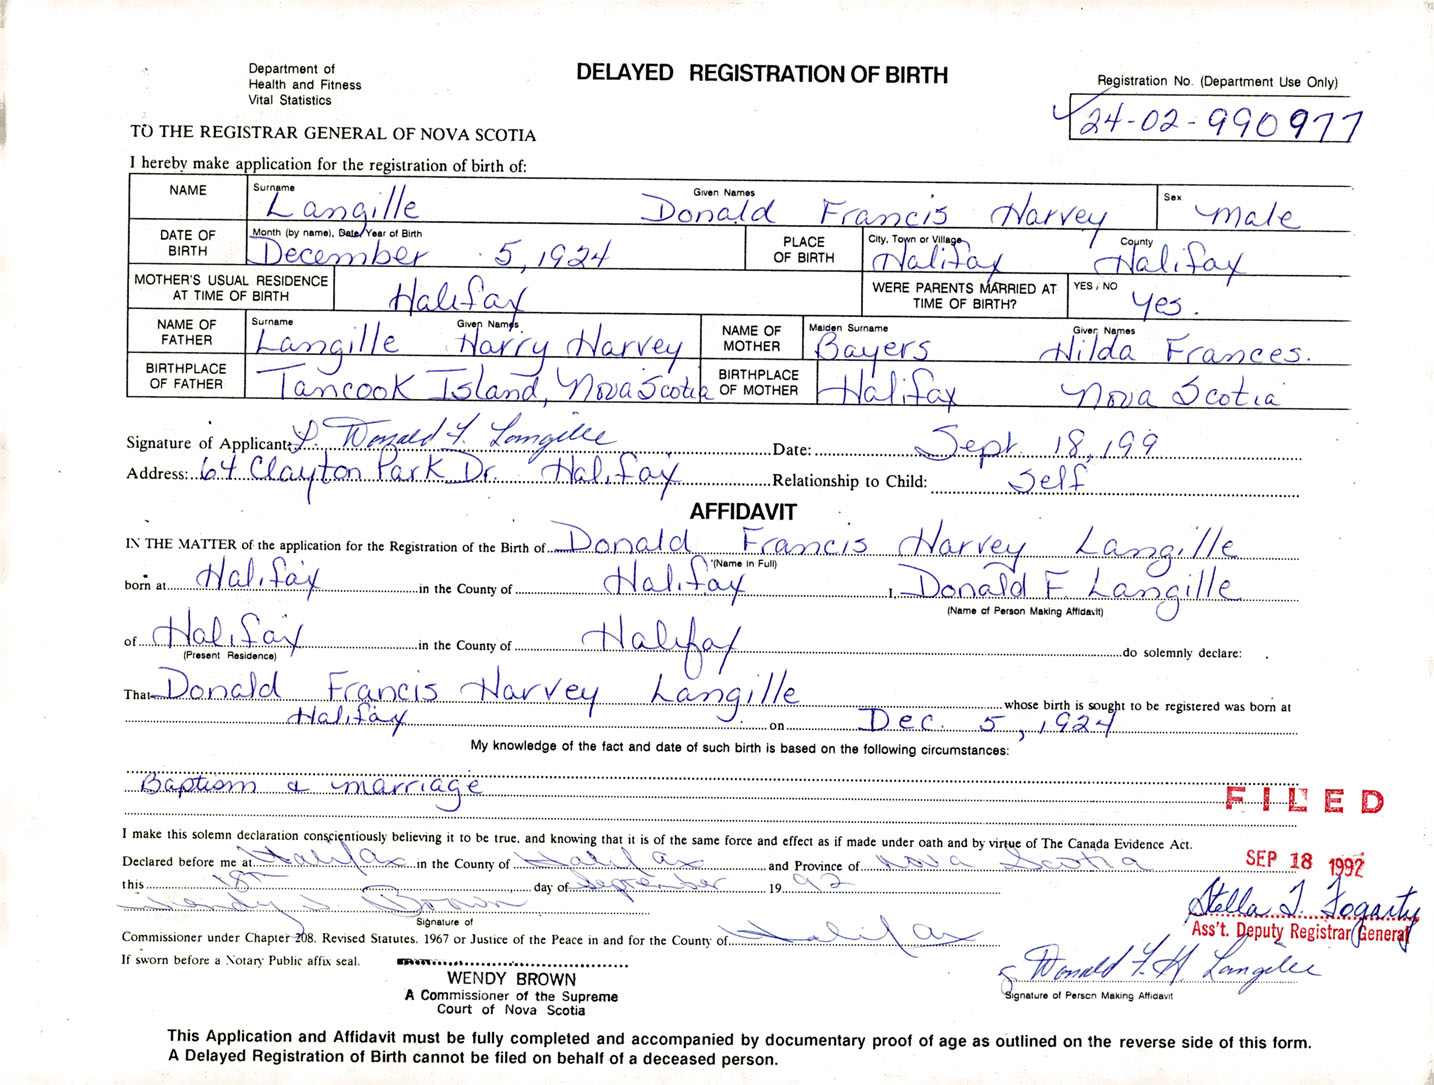 Department of
Health and Fitness
Vital Statistics
DELAYED REGISTRATION OF BIRTH
Registration No. (Department Use Only)
24-02-990977
TO THE REGISTRAR GENERAL OF NOVA SCOTIA
I hereby make application for the registration of birth of:
NAME Surname Given Names Sex
Langille Donald Francis Harvey Male
DATE OF BIRTH Month (by name), Date/Year of Birth PLACE OF BIRTH City, Town or Village County
December 5, 1924 Halifax Halifax
MOTHER'S USUAL RESIDENCE AT TIME OF BIRTH Halifax WERE PARENTS MARRIED AT TIME OF BIRTH? YES / NO Yes.
NAME OF FATHER Surname Given Names NAME OF MOTHER Maiden Surname Given Names
Langille Harry Harvey Bayers Hilda Frances.
BIRTHPLACE OF FATHER Tancook Island, Nova Scotia BIRTHPLACE OF MOTHER Halifax Nova Scotia
Signature of Applicant: Donald F. Langille Date: Sept. 18, 199
Address: 64 Clayton Park Dr. Halifax Relationship to Child: Self
AFFIDAVIT
IN THE MATTER of the application for the Registration of the Birth of Donald Francis Harvey Langille
(Name in Full)
born at Halifax in the County of Halifax I, Donald F. Langille
(Name of Person Making Affidavit)
of Halifax in the County of Halifax do solemnly declare:
(Present Residence)
That Donald Francis Harvey Langille whose birth is sought to be registered was born at
Halifax on Dec. 5, 1924
My knowledge of the fact and date of such birth is based on the following circumstances:
Baptism & marriage
FILED
I make this solemn declaration conscientiously believing it to be true, and knowing that it is of the same force and effect as if made under oath and by virtue of The Canada Evidence Act.
Declared before me at Halifax in the County of Halifax and Province of Nova Scotia
SEP 18 1992
this 18th day of September 19 92
Stella T. Fogarty
Ass't. Deputy Registrar General
Wendy J. Brown
Signature of
Commissioner under Chapter 208, Revised Statutes, 1967 or Justice of the Peace in and for the County of Halifax
If sworn before a Notary Public affix seal.
WENDY BROWN
A Commissioner of the Supreme
Court of Nova Scotia
Donald F. H. Langille
Signature of Person Making Affidavit
This Application and Affidavit must be fully completed and accompanied by documentary proof of age as outlined on the reverse side of this form.
A Delayed Registration of Birth cannot be filed on behalf of a deceased person.